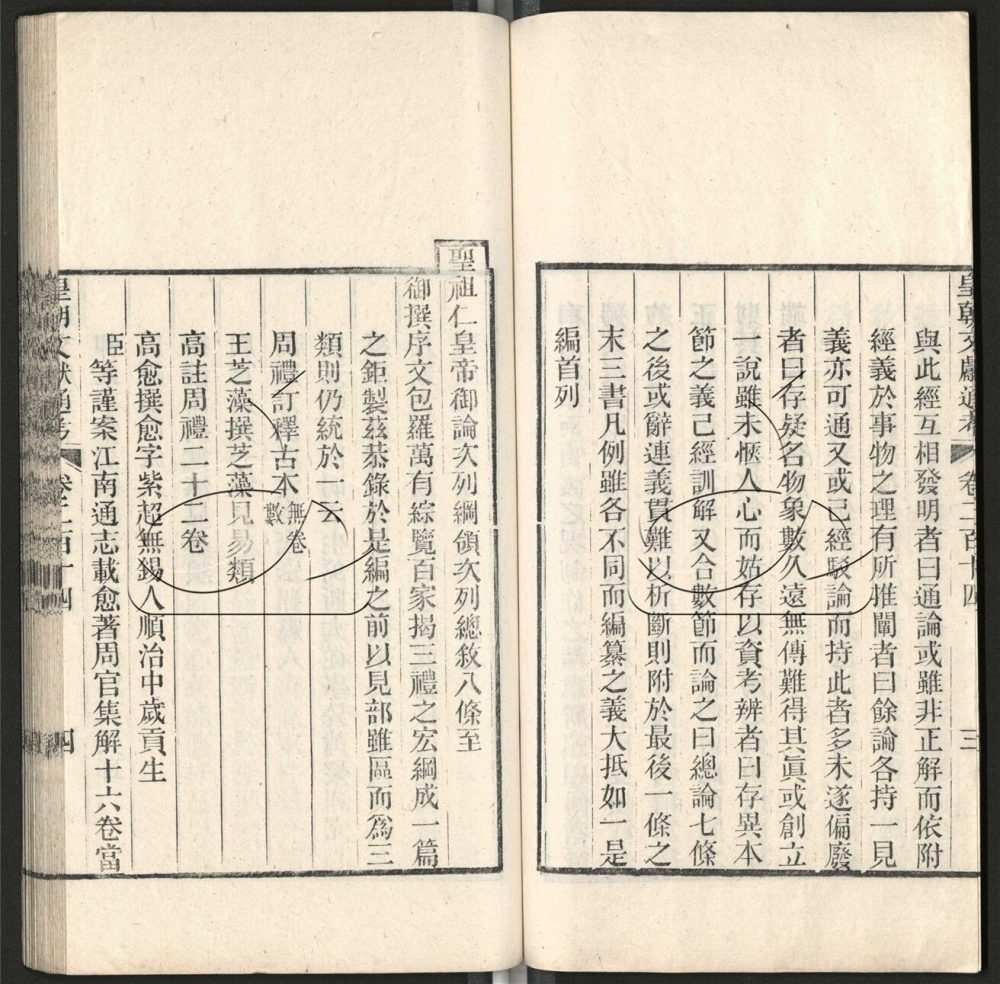 皇朝文獻通考 卷二百十四 三
與此經互相發明者曰通論或雖非正解而依附
經義於事物之理有所推闡者曰餘論各持一見
義亦可通又或已經駁論而持此者多未遂偏廢
者曰存疑名物象數久遠無傳難得其眞或創立
一說雖未愜人心而姑存以資考辨者曰存異本
節之義已經訓解又合數節而論之曰總論七條
之後或辭連義貫難以析斷則附於最後一條之
末三書凡例雖各不同而編纂之義大抵如一是
編首列
聖祖仁皇帝御論次列綱領次列總敘八條至
御撰序文包羅萬有綜覽百家揭三禮之宏綱成一篇
之鉅製茲恭錄於是編之前以見部雖區而爲三
類則仍統於一云
周禮訂釋古本無卷數
王芝藻撰芝藻見易類
高註周禮二十二卷
高愈撰愈字紫超無錫人順治中歲貢生
臣等謹案江南通志載愈著周官集解十六卷當
皇朝文獻通考 卷二百十四 四